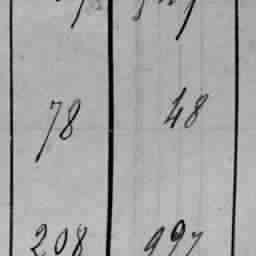 78 48
208 997